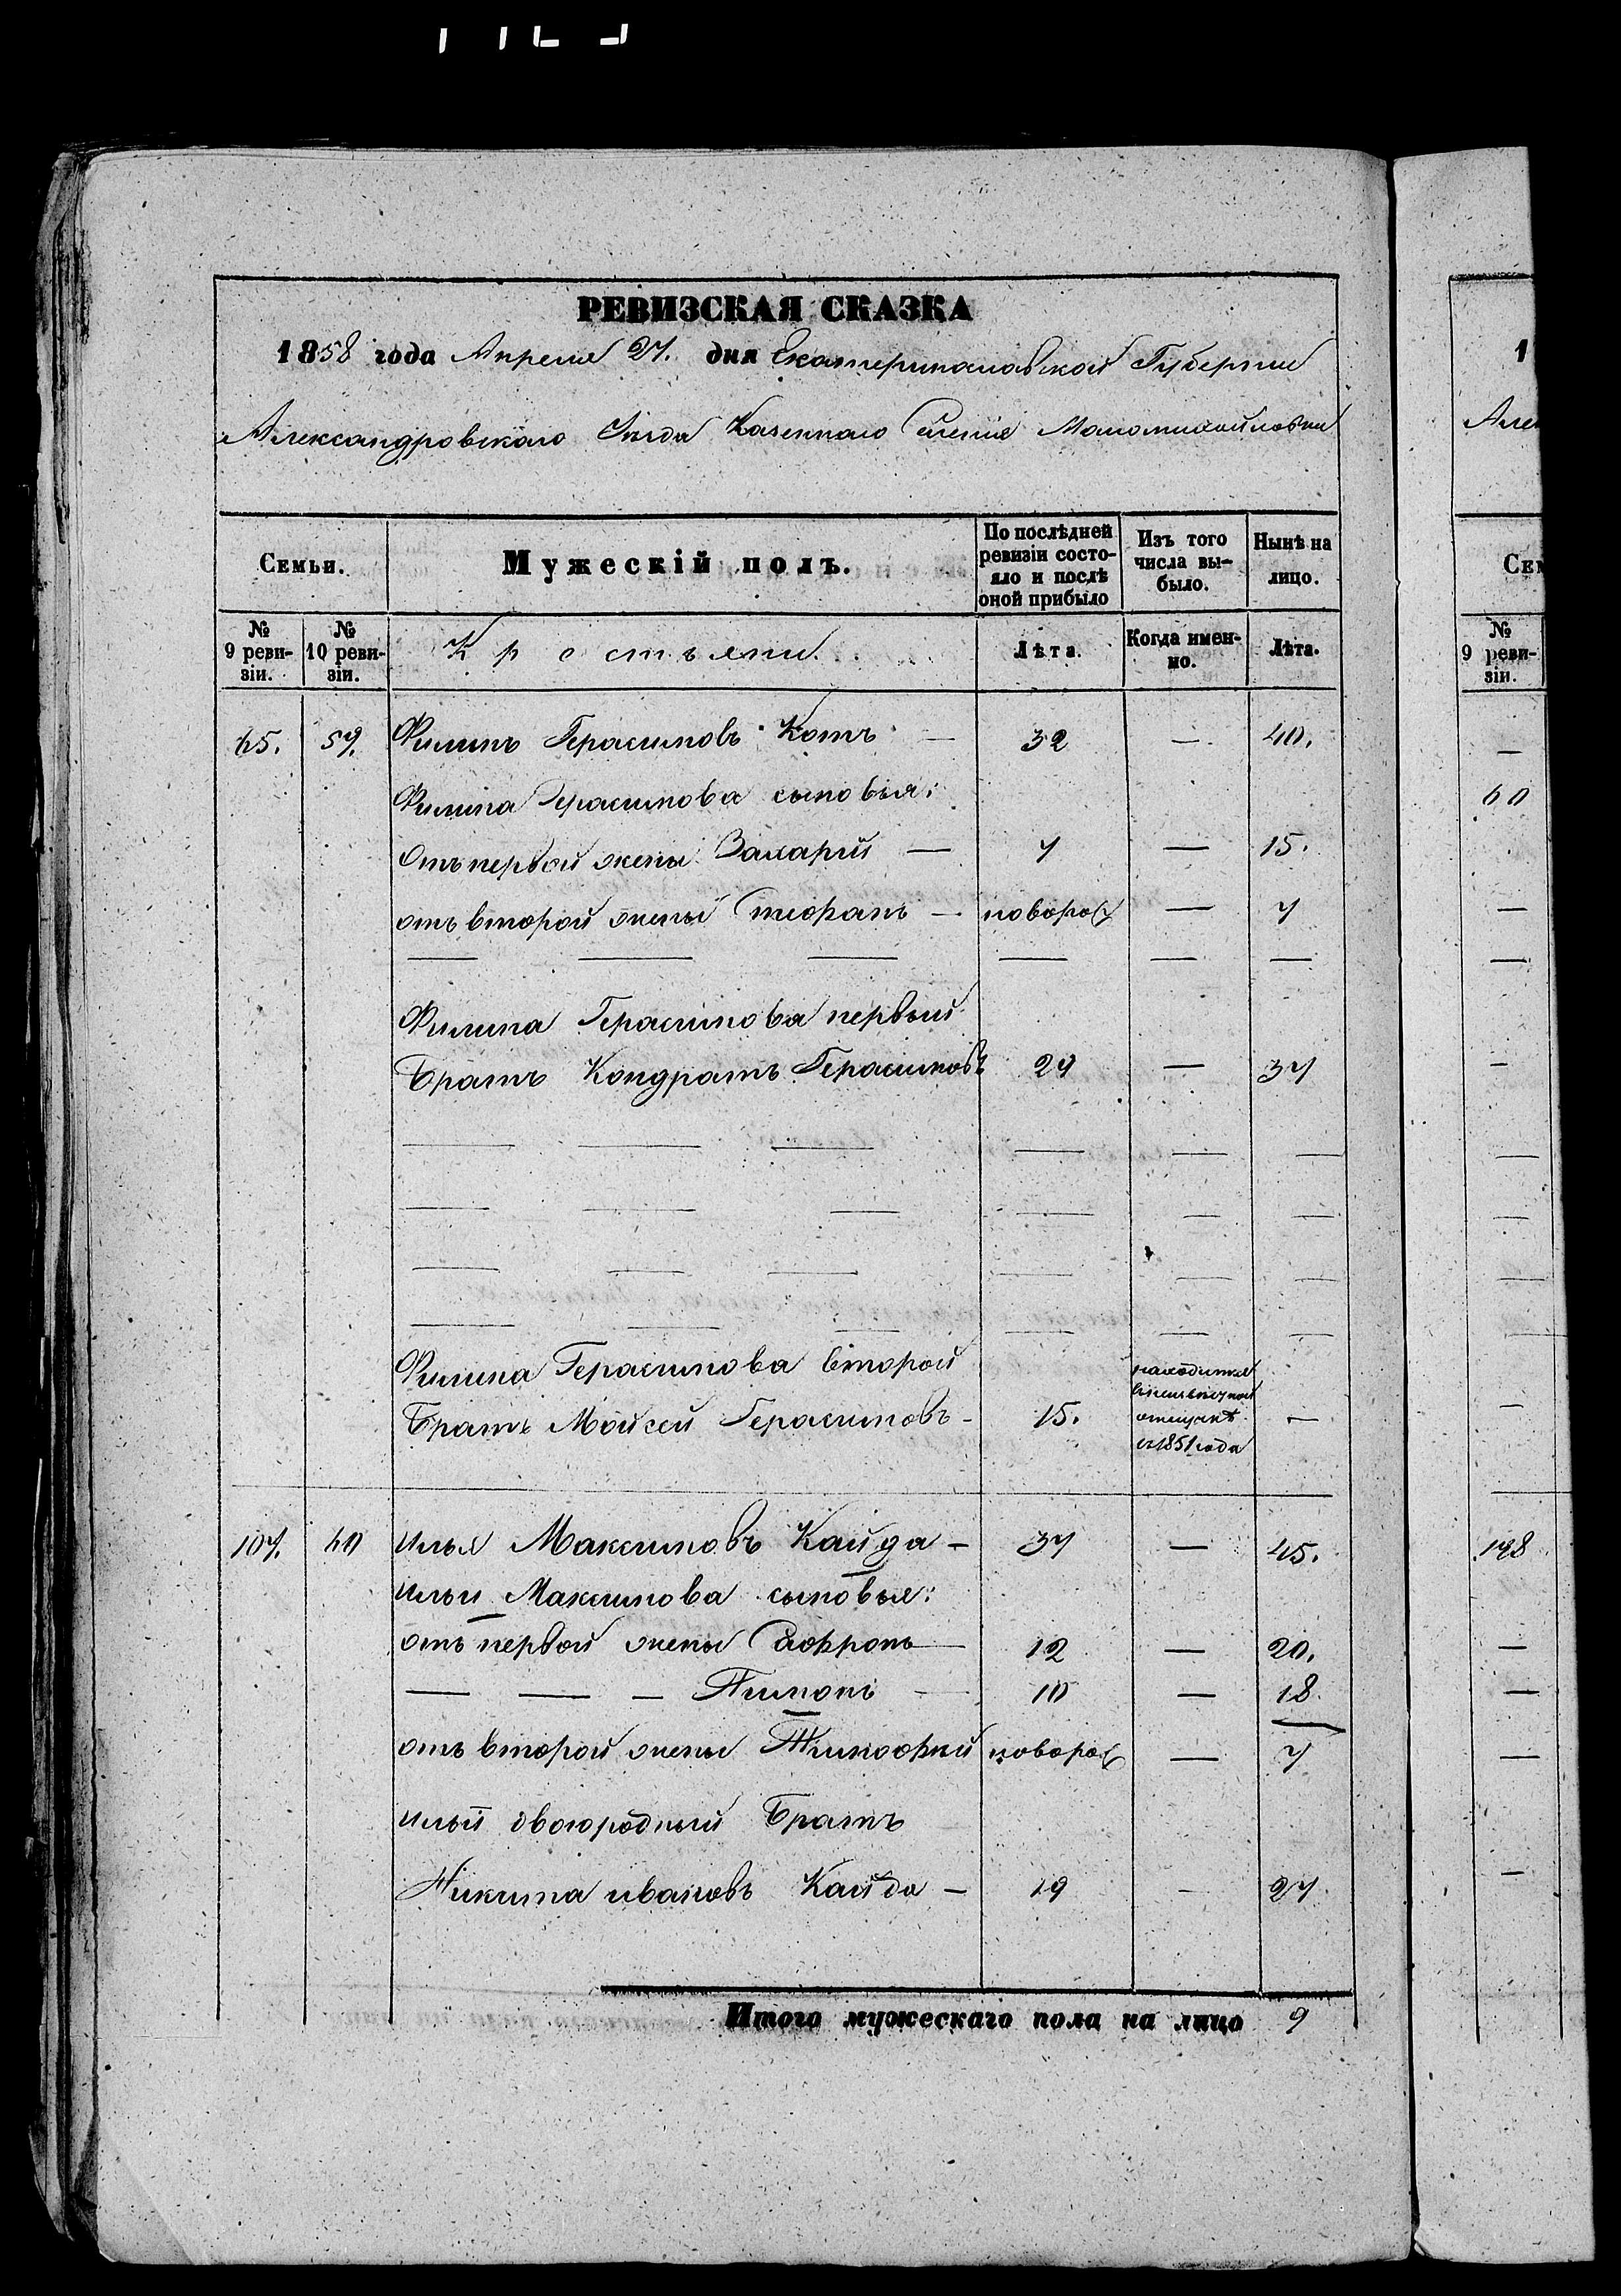 РЕВИЗСКАЯ СКАЗКА
1858 года Апреля 27. дня Екатеринославской Губернии
Александровскаго Уѣзда Казеннаго Селенія Маломихайловки
Семьи.
Мужескій полъ.
По послѣдней ревизіи состояло и послѣ оной прибыло
Изъ того числа выбыло.
Нынѣ на лицо.
№ 9 ревизіи.
№ 10 ревизіи.
Крестьяни.
Лѣта.
Когда именно.
Лѣта.
65. 59. Филипъ Герасимовъ Котъ — 32 — 40.
Филипа Герасимова сыновья:
Отъ первой жены Захарій — 7 — 15.
отъ второй жены Стефанъ — новорож — 7
— — — — — —
Филипа Герасимова первый
Братъ Кондратъ Герасимовъ 29 — 37
— — — — — —
— — — — — —
— — — — — —
— — — — — —
Филипа Герасимова второй
Братъ Мойсей Герасимовъ - 15. находится отпускѣ съ 1851 года —
107. 60 Илья Максимовъ Кайда - 37 — 45.
Ильи Максимова сыновья:
отъ первой жены Сафронъ — 12 — 20.
— — — Тимонъ — 10 — 18.
отъ второй жены Тимофѣй новорож — 7
Ильи двоюродный Братъ
Никита ивановъ Кайда — 19 — 27.
Итого мужескаго пола на лицо 9
1
Алек
Сем
№
9 ревизіи.
60
198